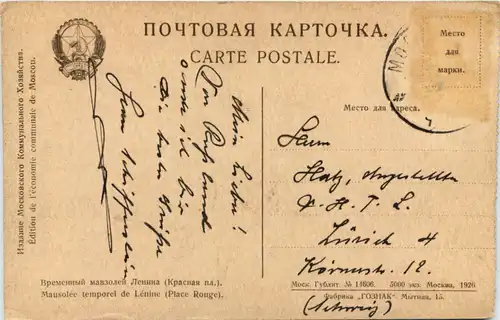 ПОЧТОВАЯ КАРТОЧКА.
CARTE POSTALE.
Издание Московского Коммунального Хозяйства.
Édition de l'économie communale de Moscou.
Место
для
марки.
Место для адреса.
Mein Lieber!
Von Rußland
die besten Grüße
Herrn
Hatz, Angestellter
V. H. T. L.
Zürich 4
Körnerstr. 12.
(Schweiz)
Временный мавзолей Ленина (Красная пл.).
Mausolée temporel de Lénine (Place Rouge).
Моск. Гублит № 14606. 5000 экз. Москва, 1926
Фабрика „ГОЗНАК“ Мытная, 15.